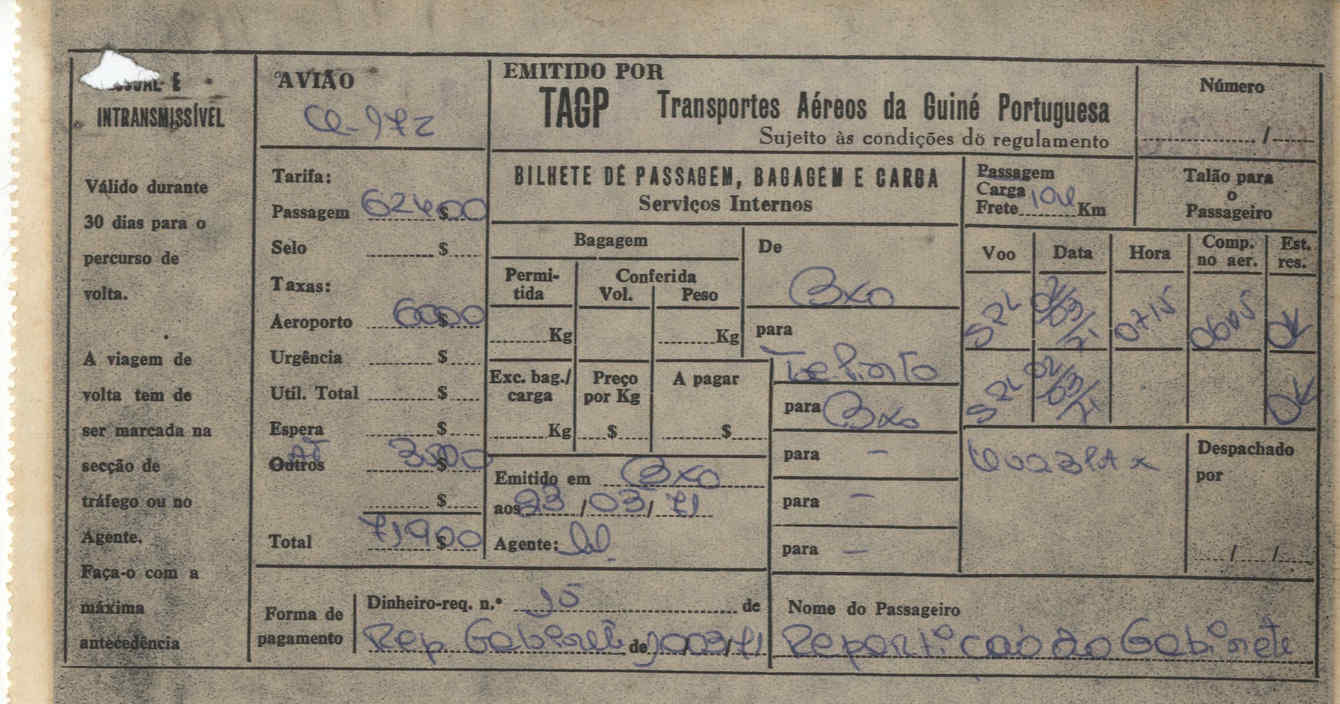 E
INTRANSMISSÍVEL
Válido durante
30 dias para o
percurso de
volta.
A viagem de
volta tem de
ser marcada na
secção de
tráfego ou no
Agente.
Faça-o com a
máxima
antecedência
AVIÃO
Tarifa:
Passagem 624$00
Selo $
Taxas:
Aeroporto 60$00
Urgência $
Util. Total $
Espera $
Outros $
$
Total 719$00
EMITIDO POR
TAGP Transportes Aéreos da Guiné Portuguesa
Sujeito às condições do regulamento
Número
/
BILHETE DE PASSAGEM, BAGAGEM E CARGA
Serviços Internos
Passagem
Carga
Frete Km
Talão para
o
Passageiro
Bagagem
Permi-
tida
Conferida
Vol. Peso
Kg Kg
Exc. bag./
carga
Preço
por Kg
A pagar
Kg $ $
Emitido em Bxo
aos 23/03/71
Agente:
De
Bxo
para
para Bxo
para -
para -
para -
Voo Data Hora Comp. no aer. Est. res.
SPL 0715 0645 OK
SPL OK
Despachado
por
/ /
Forma de
pagamento
Dinheiro-req. n.º de
Rep. Gabinete de
Nome do Passageiro
Repartição do Gabinete